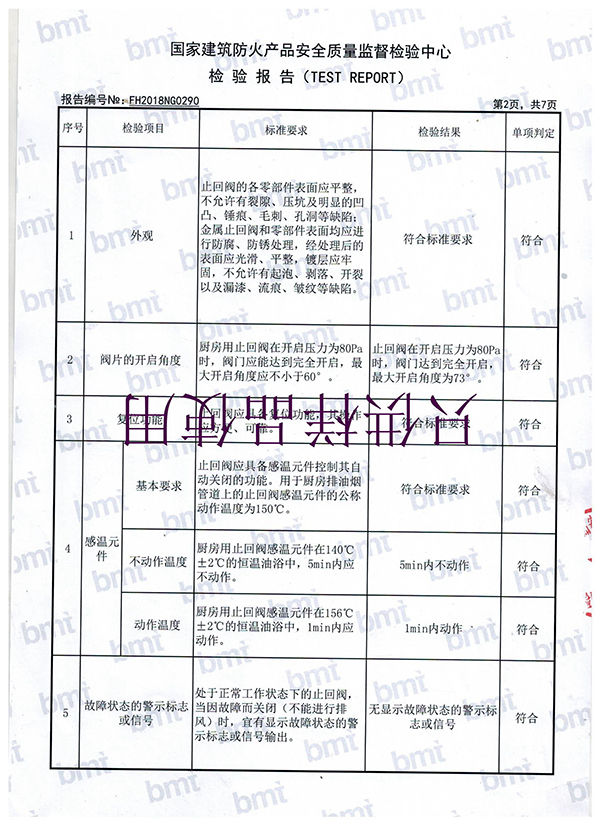 国家建筑防火产品安全质量监督检验中心
检 验 报 告（TEST REPORT）
报告编号№：FH2018NG0290
第2页，共7页
序号 检验项目 标准要求 检验结果 单项判定
1 外观
止回阀的各零部件表面应平整，
不允许有裂隙、压坑及明显的凹
凸、锤痕、毛刺、孔洞等缺陷；
金属止回阀和零部件表面均应进
行防腐、防锈处理，经处理后的
表面应光滑、平整，镀层应牢
固，不允许有起泡、剥落、开裂
以及漏漆、流痕、皱纹等缺陷。
符合标准要求
符合
2 阀片的开启角度
厨房用止回阀在开启压力为80Pa
时，阀门应能达到完全开启，最
大开启角度应不小于60°。
止回阀在开启压力为80Pa
时，阀门达到完全开启，
最大开启角度为73°。
符合
3 复位功能
止回阀应具备复位功能，其操作
应方便、可靠。
符合标准要求
符合
只供样品使用
4 感温元
件
基本要求
止回阀应具备感温元件控制其自
动关闭的功能。用于厨房排油烟
管道上的止回阀感温元件的公称
动作温度为150℃。
符合标准要求
符合
不动作温度
厨房用止回阀感温元件在140℃
±2℃的恒温油浴中，5min内应
不动作。
5min内不动作
符合
动作温度
厨房用止回阀感温元件在156℃
±2℃的恒温油浴中，1min内应
动作。
1min内动作
符合
5 故障状态的警示标志
或信号
处于正常工作状态下的止回阀，
当因故障而关闭（不能进行排
风）时，宜有显示故障状态的警
示标志或信号输出。
无显示故障状态的警示标
志或信号
符合
bmt